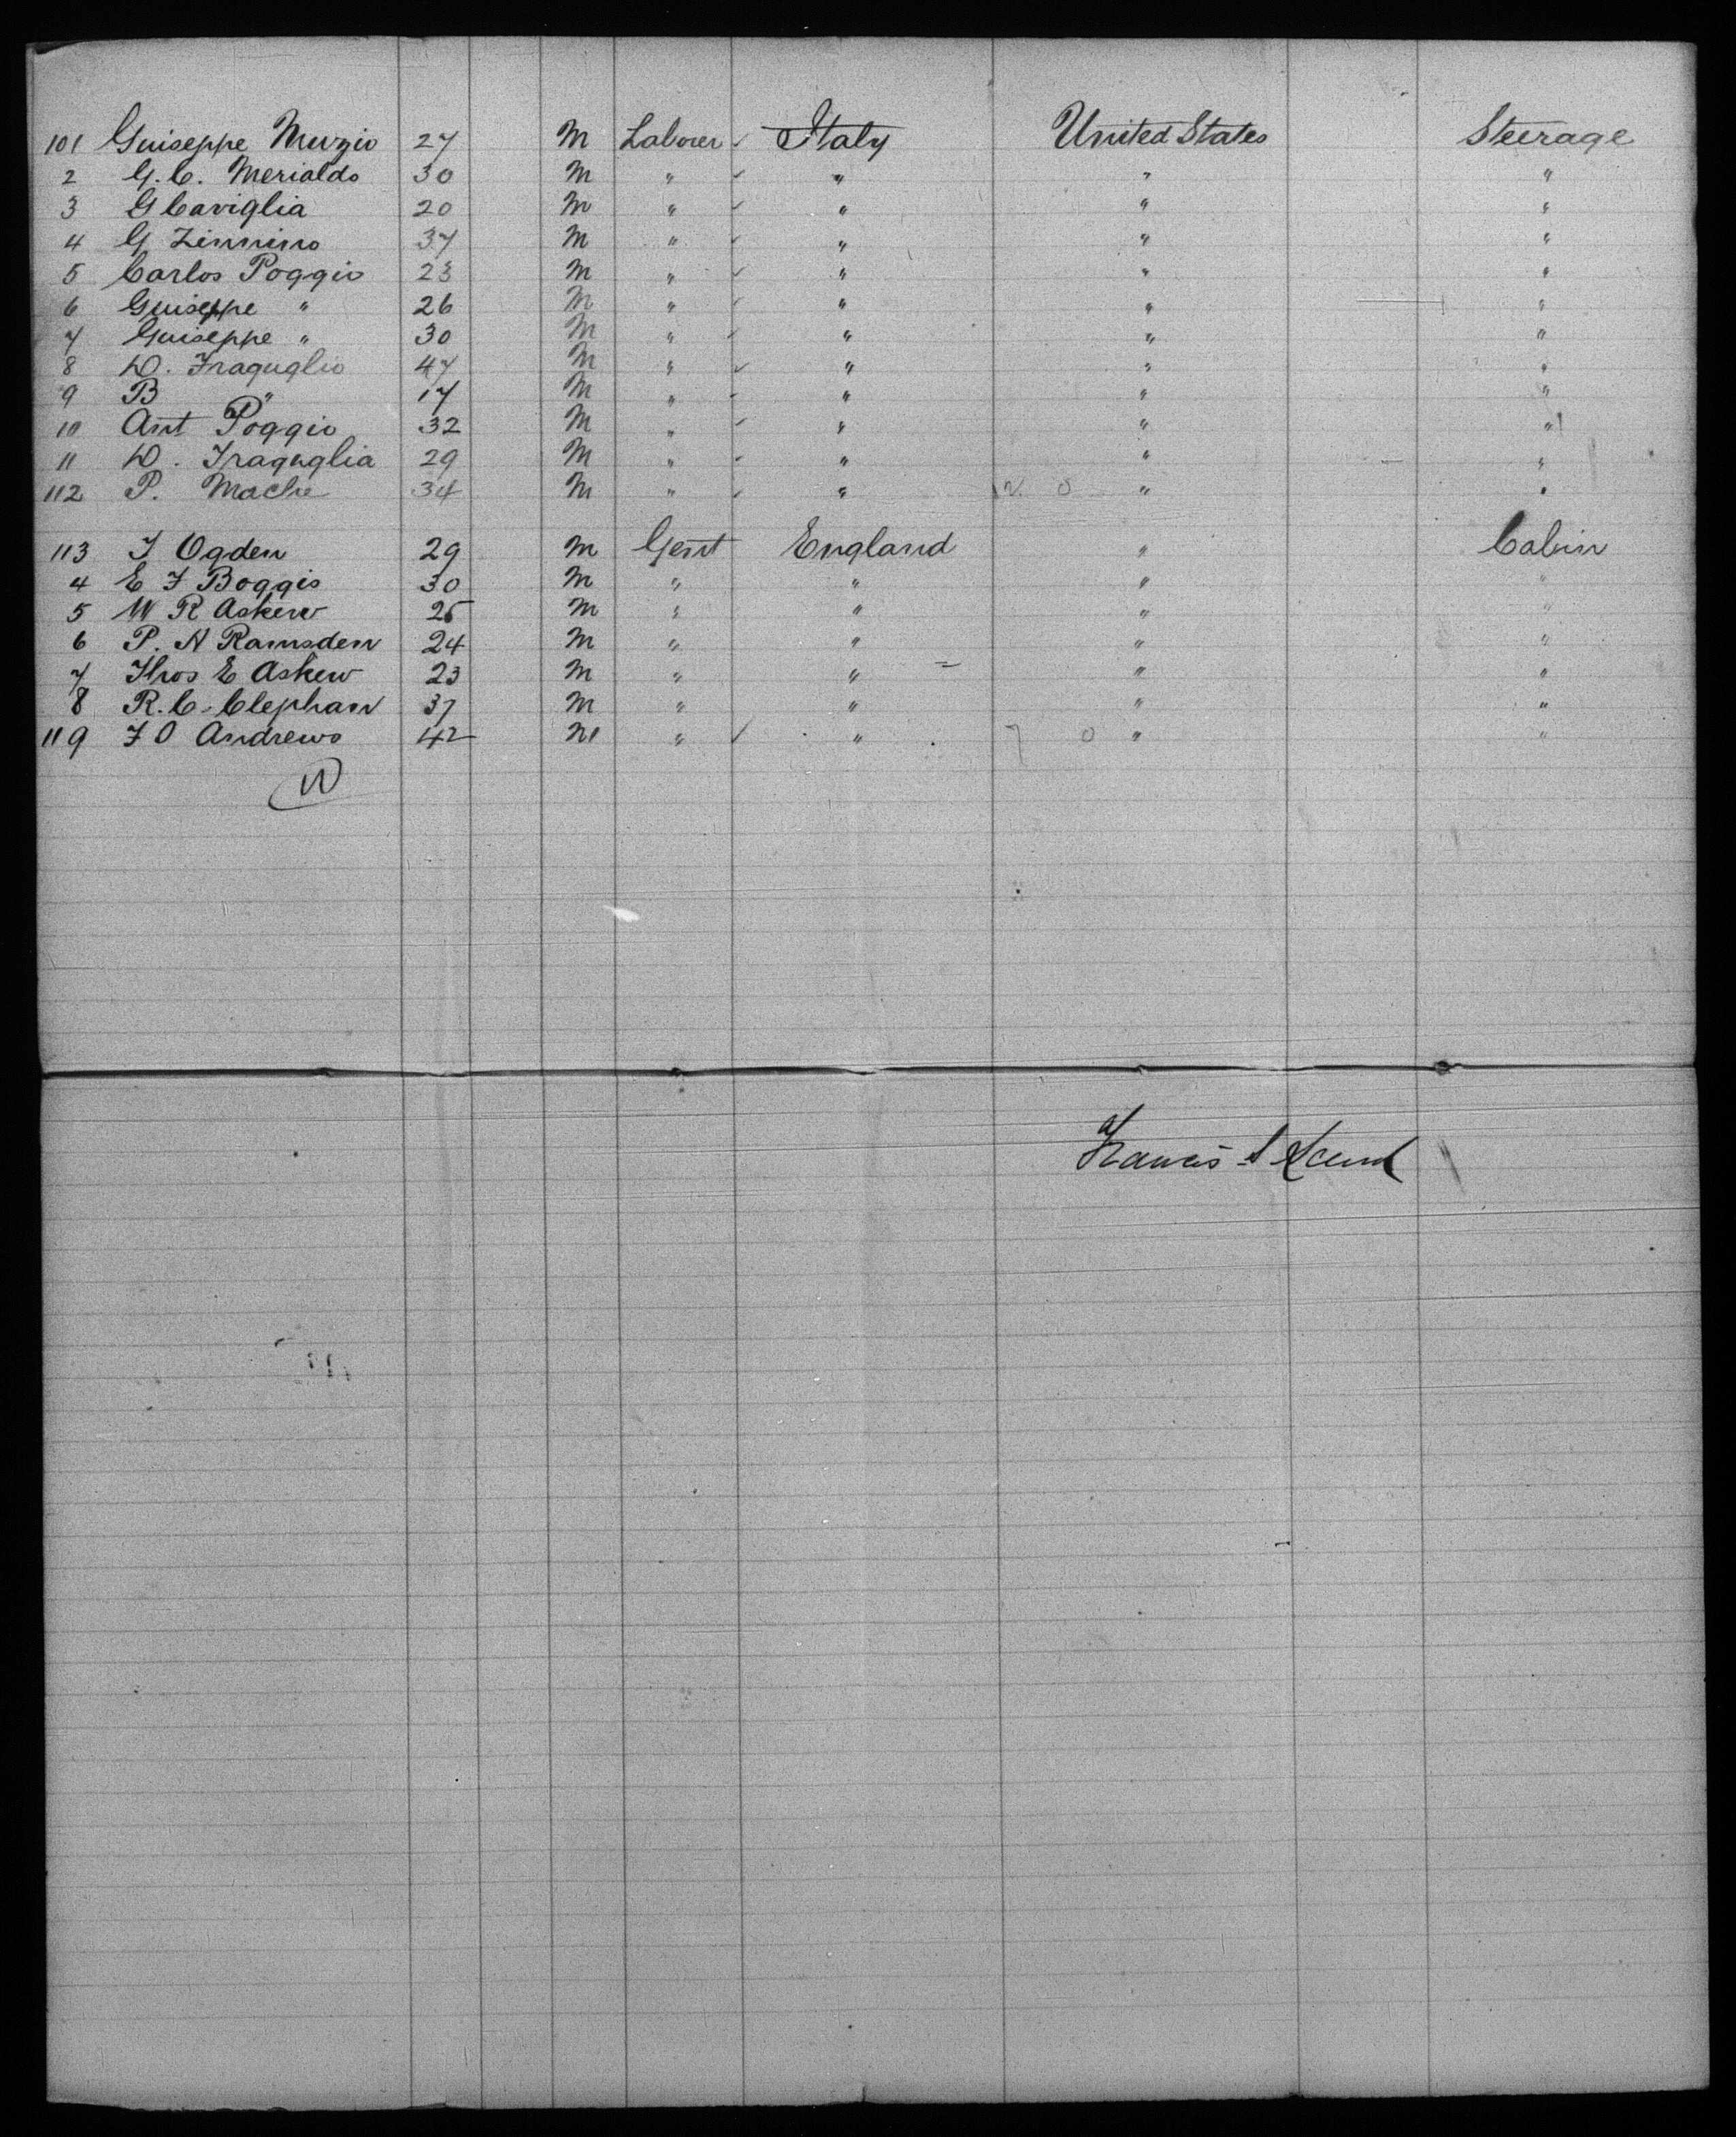 101 Guiseppe Muzio 27 M Laborer ✓ Italy United States Steerage
2 G. C. Merialdo 30 M " ✓ " " "
3 G Caviglia 20 M " ✓ " " "
4 G Zinnino 37 M " ✓ " " "
5 Carlos Poggio 23 M " ✓ " " "
6 Guiseppe " 26 M " ✓ " " "
7 Guiseppe " 30 M " ✓ " " "
8 D. Fraguglio 47 M " ✓ " " "
9 B " 17 M " ✓ " " "
10 Ant Poggio 32 M " ✓ " " "
11 D. Fraguglia 29 M " ✓ " " "
112 P. 34 M " ✓ " "  "
113 J Ogden 29 M Gent England " Cabin
4 E F Boggis 30 M " " " "
5 W R Askew 25 M " " " "
6 P. A Ramsden 24 M " " " "
7 Thos E Askew 23 M " " " "
8 R. C. Clephan 37 M " " " "
119 F O Andrews 42 M " ✓ " 7 0 " "
Francis